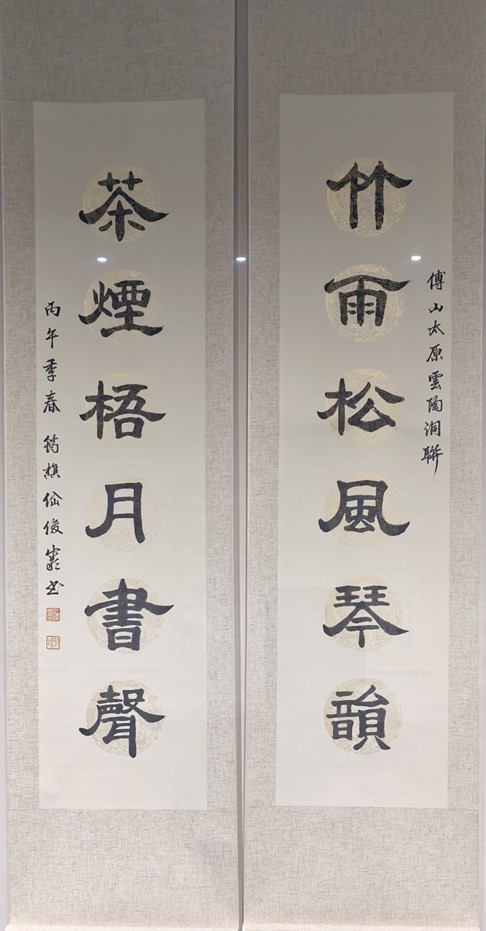 傅山太原雲陶洞聯
竹雨松風琴韻
茶煙梧月書聲
丙午季春 俊嚴书